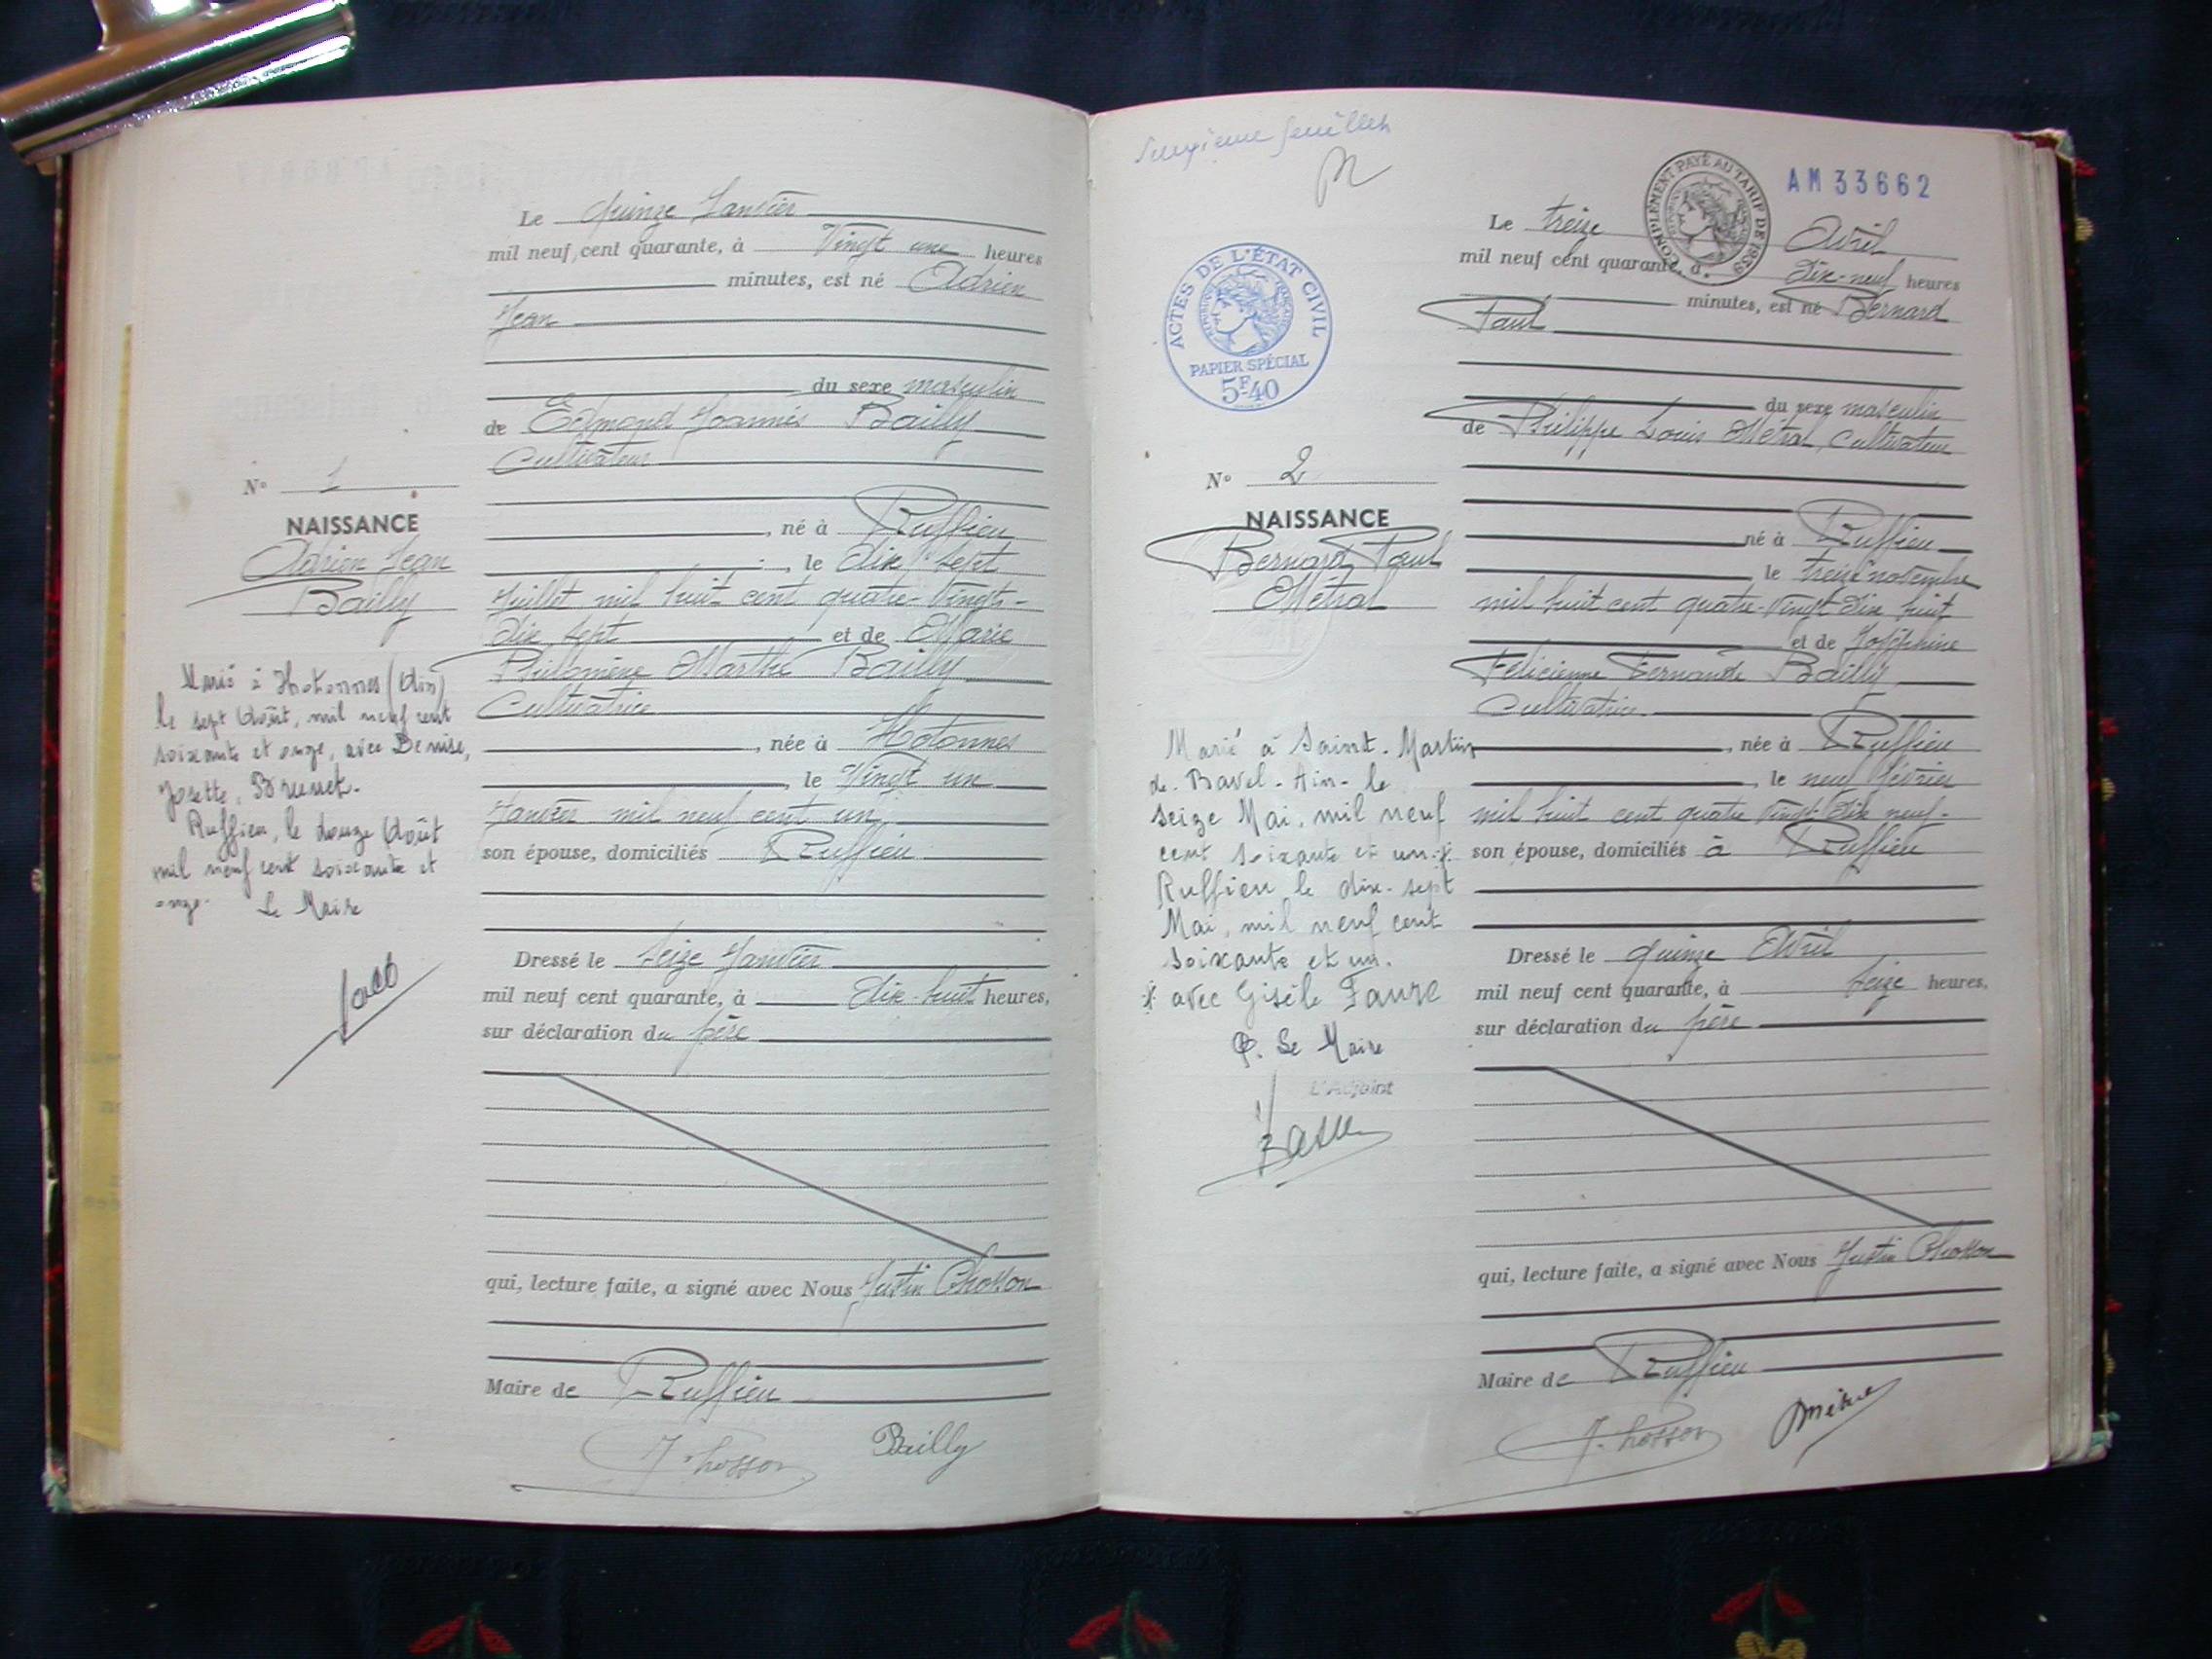 Le quinze Janvier
mil neuf cent quarante, à Vingt une heures
minutes, est né Adrien
Jean
du sexe masculin
de Edmond Joannès Bailly
Cultivateur
, né à Ruffieu
, le dix-sept
Juillet mil huit cent quatre-vingt-
dix sept et de Marie
Philomène Marthe Bailly
Cultivatrice
, née à Hotonnes
, le Vingt un
Janvier mil neuf cent un
son épouse, domiciliés Ruffieu
Dressé le seize Janvier
mil neuf cent quarante, à dix-huit heures,
sur déclaration du père
qui, lecture faite, a signé avec Nous Justin Chosson
Maire de Ruffieu
J. Chosson
Bailly
N° 1
NAISSANCE
Adrien Jean
Bailly
Marié à Hotonnes (Ain)
le sept Août, mil neuf cent
soixante et onze, avec Denise,
Josette, Brunet.
Ruffieu, le douze Août
mil neuf cent soixante et
onze. Le Maire
feuillet
AM 33662
COMPLÉMENT PAYÉ AU TARIF DE 1939
ACTES DE L'ÉTAT CIVIL
PAPIER SPÉCIAL
5F40
Le treize Avril
mil neuf cent quarante, à dix-neuf heures
minutes, est né Bernard
Paul
du sexe masculin
de Philippe Louis Métral, Cultivateur
né à Ruffieu
, le treize novembre
mil huit cent quatre-vingt dix huit
et de Joséphine
Félicienne Fernande Bailly
Cultivatrice
, née à Ruffieu
, le neuf février
mil huit cent quatre vingt-dix neuf-
son épouse, domiciliés à Ruffieu
Dressé le quinze Avril
mil neuf cent quarante, à seize heures,
sur déclaration du père
qui, lecture faite, a signé avec Nous Justin Chosson
Maire de Ruffieu
J. Chosson
N° 2
NAISSANCE
Bernard Paul
Métral
Marié à Saint-Martin
de-Bavel-Ain-le
seize Mai, mil neuf
cent soixante et un.*
Ruffieu le dix-sept
Mai, mil neuf cent
soixante et un.
* avec Gisèle Faure
P. Le Maire
L'Adjoint